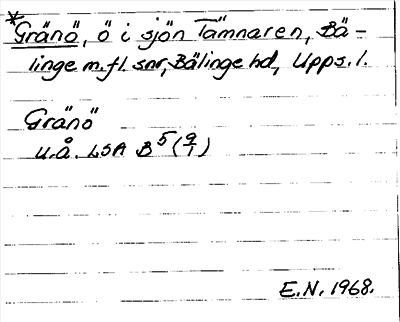 *Gränö, ö i sjön Tämnaren, Bä-
linge m.fl. snr, Bälinge hd, Upps. l.
Gränö
u.å. LSA B5(9/1)
E.N. 1968.